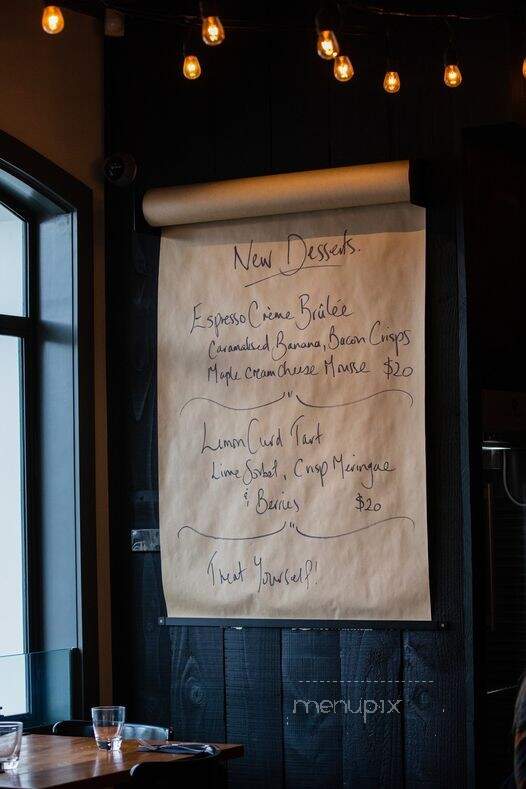 New Desserts.
Espresso Crème Brûlée
Caramalised Banana, Bacon Crisps
Maple cream cheese Mousse $20
Lemon Curd Tart
Lime Sorbet, Crisp Meringue
& Berries $20
Treat Yourself!
menupix